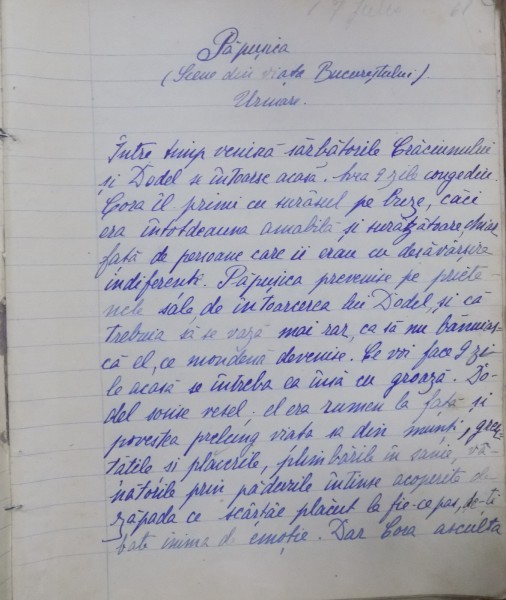 Păpușica
(Scene din viața Bucureștului).
Urmare.
Între timp veniră sărbătorile Crăciunului
și Dodel se întoarse acasă. Avea 9 zile congediu.
Coca îl primi cu surâsul pe buze, căci
era întotdeauna amabilă și surâzătoare chiar
față de persoane care îi erau cu desăvârșire
indiferente. Păpușica prevenise pe priete-
nele sale de întoarcerea lui Dodel, și că
trebuia să se vază mai rar, ca să nu bănuias-
că el, ce mondenă devenise. Ce voi face 9 zi-
le acasă se întreba ea însă cu groază. Do-
del sosise vesel; el era rumen la față și
povestea prelung viața sa din munți, greu-
tățile si plăcerile, plimbările în sanie, vâ-
nătorile prin pădurile întinse acoperite de
zăpada ce scârțâe plăcut la fie-ce pas, se-ți
bate inima de emoție. Dar Coca asculta